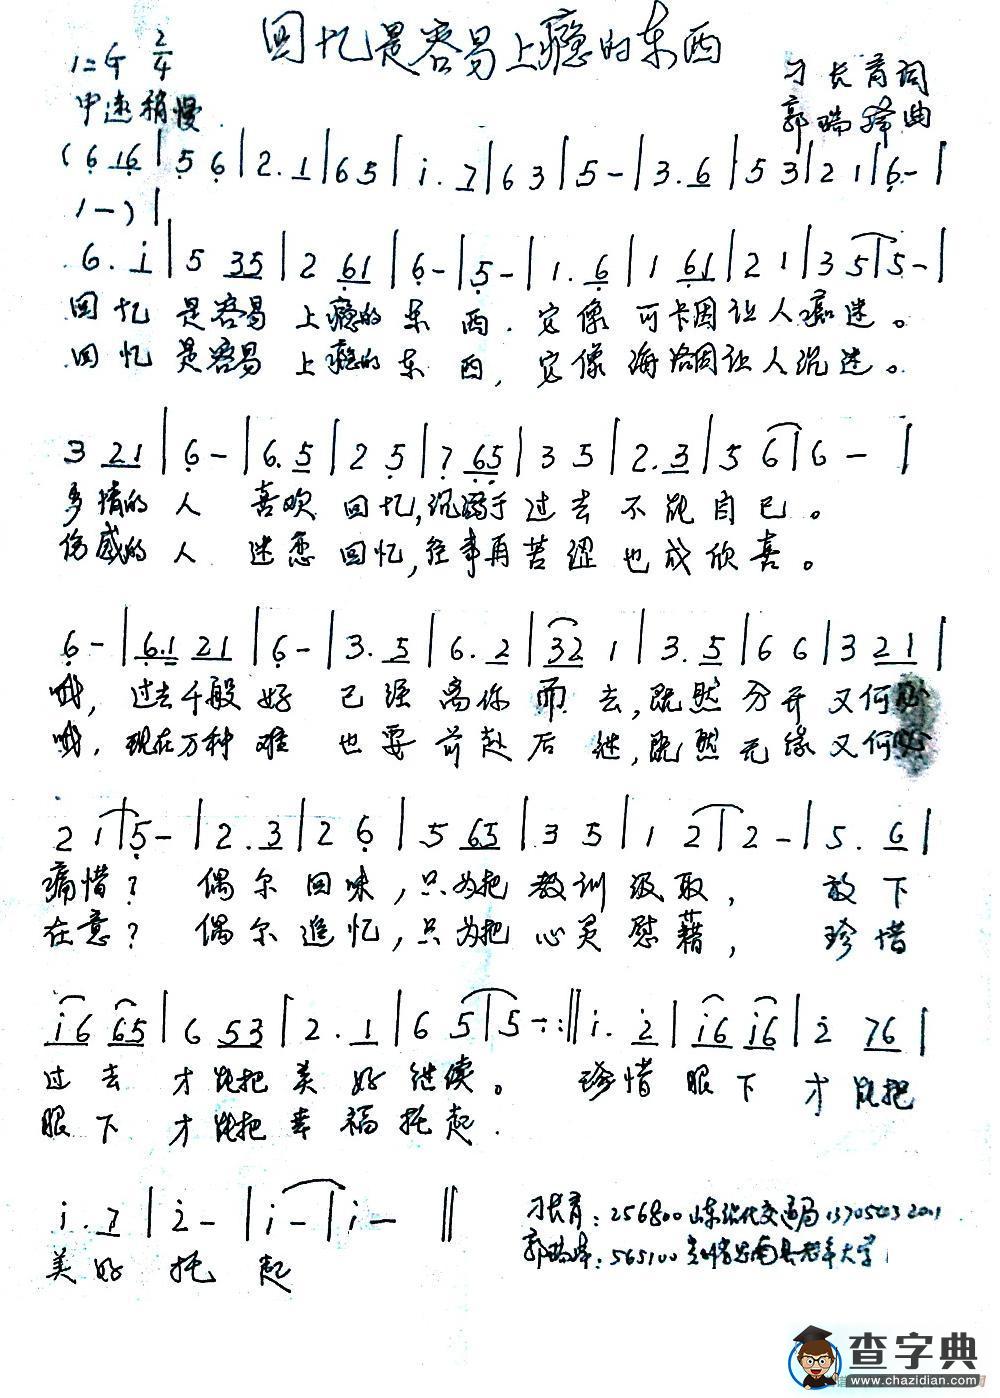 回忆是容易上瘾的东西
1=G 2/4
中速稍慢
刁长育词
郭瑞 曲
(6 16|5 6|2. 1|6 5|i. 7|6 3|5 -|3. 6|5 3|2 1|6 -|
1 -)|
6. i|5 35|2 61|6 -|5 -|1. 6|1 61|2 1|3 5|5 -|
回忆 是容易 上瘾的 东 西. 它像 可卡因让人痴迷。
回忆 是容易 上瘾的 东 西, 它像 海洛因让人沉迷。
3 21|6 -|6. 5|2 5|7 65|3 5|2. 3|5 6|6 -|
多情的 人 喜欢 回忆,沉溺于过去不能自已。
伤感的 人 迷恋 回忆,往事再苦涩也成欣喜。
6 -|6.1 21|6 -|3. 5|6. 2|32 1|3. 5|6 6|3 21|
哦, 过去千般好 已经离你而去,既然分开又何必
哦, 现在万种难 也要前赴后继,既然无缘又何必
2 1|5 -|2. 3|2 6|5 65|3 5|1 2|2 -|5. 6|
痛惜? 偶尔回味,只为把教训级取, 放下
在意? 偶尔追忆,只为把心灵慰藉, 珍惜
i6 65|6 53|2. 1|6 5|5 -:‖i. 2|i6 i6|2 76|
过去 才能把美好继续。 珍惜眼下才能把
眼下 才能把幸福托起.
i. 7|2 -|i -|i -‖
美好 托 起
刁长育:256800山东沾化交通局
郭瑞 :565100 县老年大学
查字典
www.chazidian.com